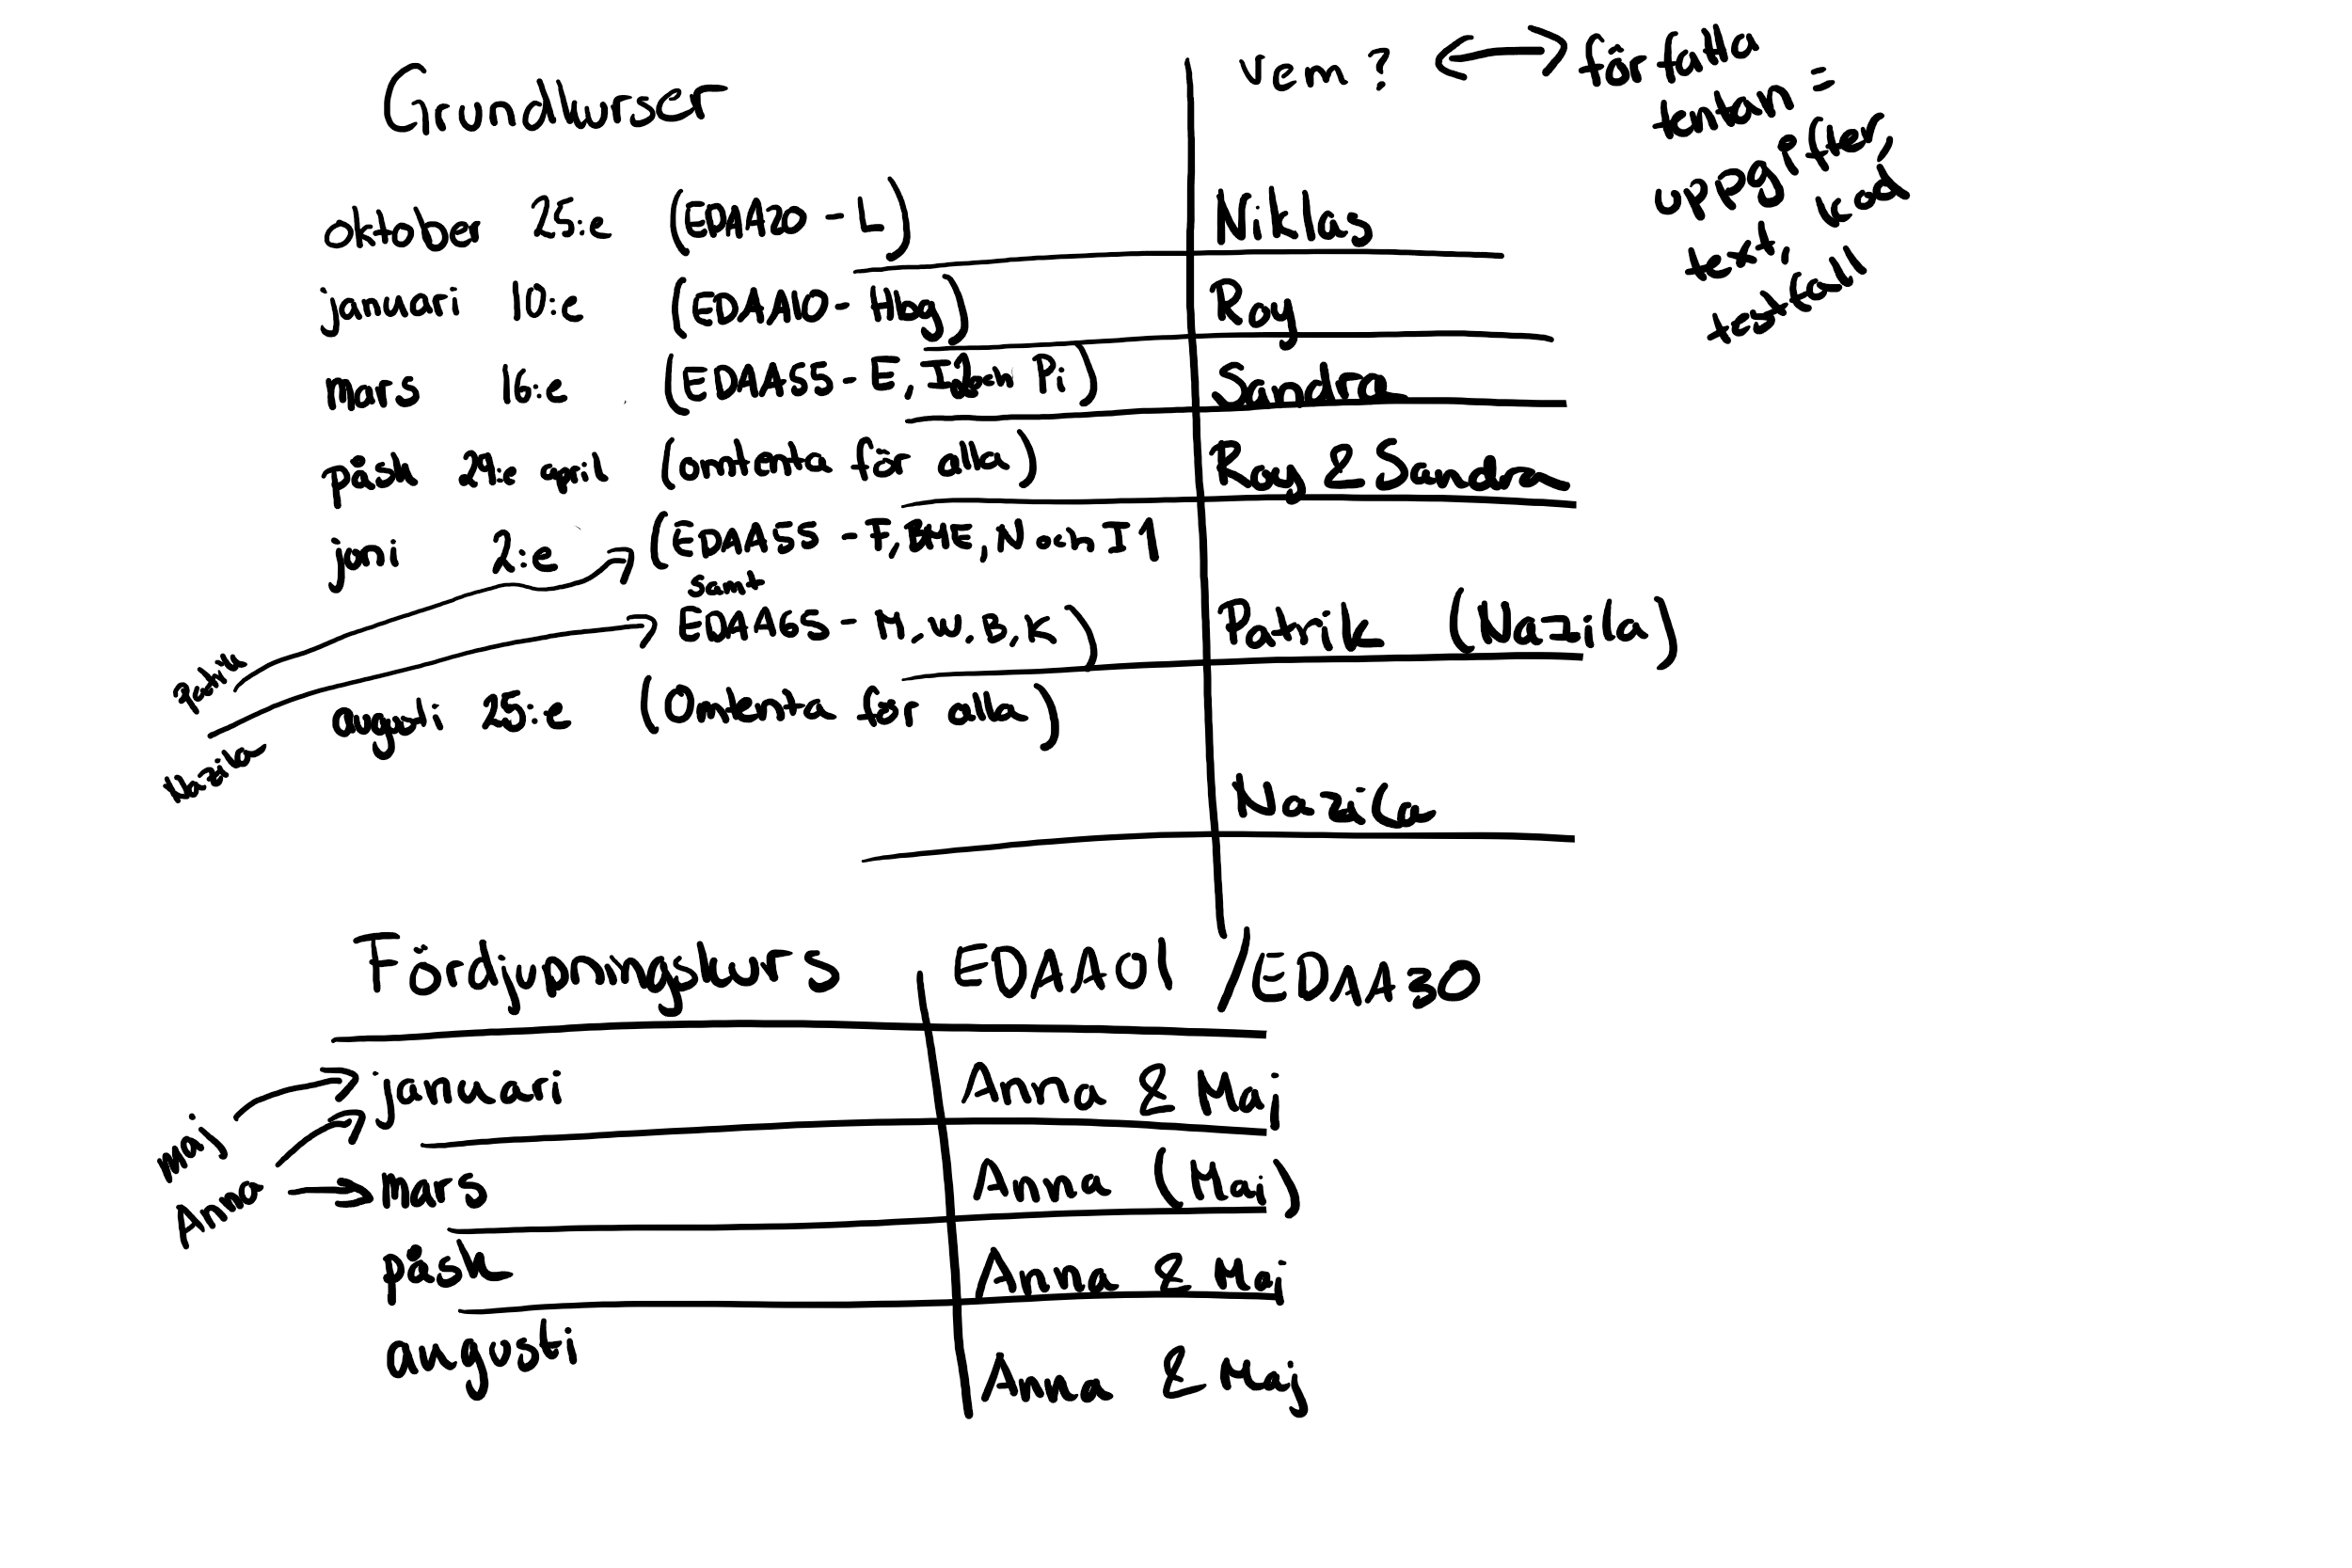 Grundkurser
vem? ↔ författa
tentan =
uppgifter,
text, kod,
testfall
oktober 25:e (EDAA20 - L) Niklas
januari 10:e (EDAA10 - Hbg) Roy
mars 16:e (EDAA55 - E, I och Pi) Sandra
påsk 29:e april (omtenta för alla) Roy & Sandra
juni 2:e (EDAA55 - F, BME, N och I1
samt
EDAA65 - M, W, B, K) Patrik (Nazila)
Patrik
augusti 25:e (Omtenta för alla)
Nazila
Nazila
Fördjupningskurs EDAA01 / EDAA30
januari Anna & Maj
Maj
mars Anna (Maj)
Anna
påsk Anna & Maj
augusti Anna & Maj